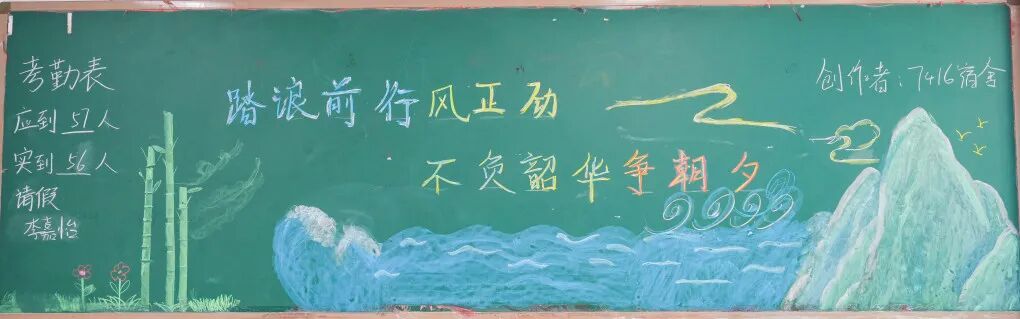 考勤表
应到 57 人
实到 56 人
请假
李嘉怡
踏浪前行风正劲
不负韶华争朝夕
创作者：7416宿舍